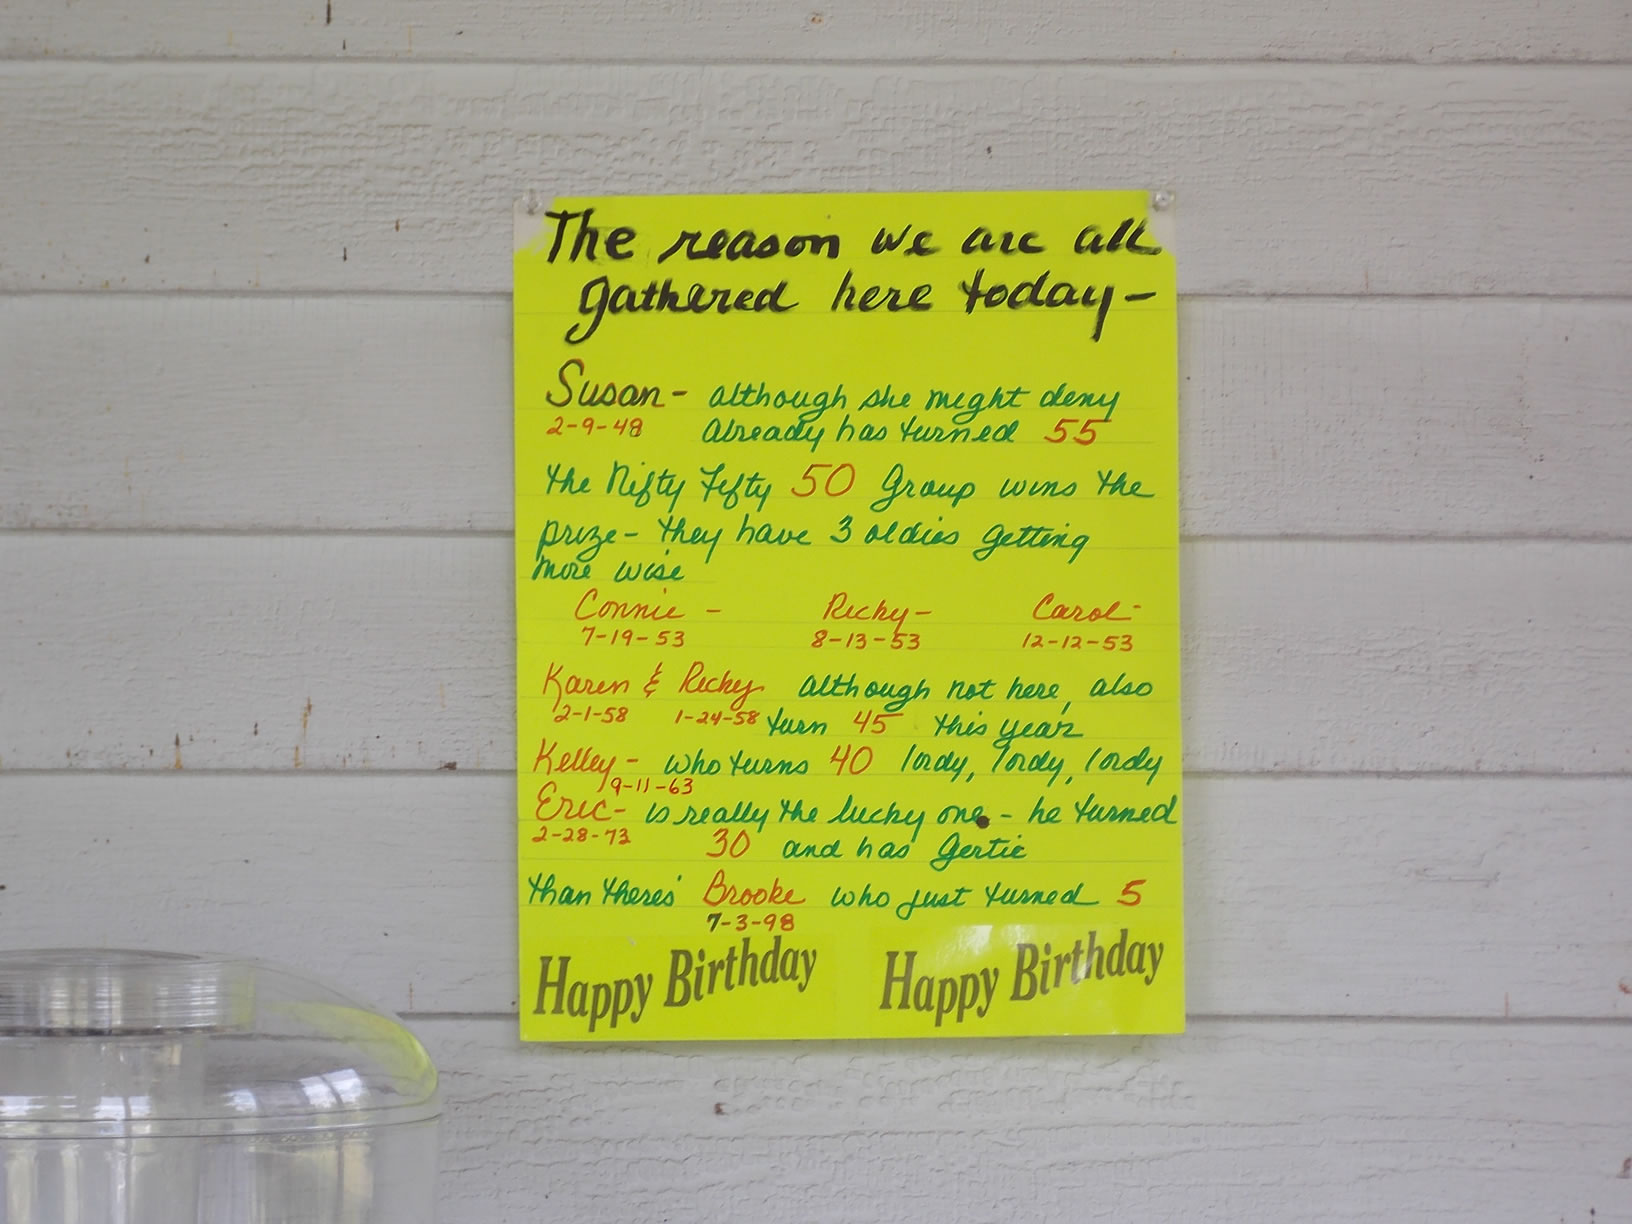 The reason we are all
gathered here today -
Susan - although she might deny
2-9-48 already has turned 55
the Nifty Fifty 50 Group wins the
prize - they have 3 oldies getting
more wise
Connie - Ricky - Carol -
7-19-53 8-13-53 12-12-53
Karen & Ricky although not here, also
2-1-58 1-24-58 turn 45 this year
Kelley - who turns 40 lordy, lordy, lordy
9-11-63
Eric - is really the lucky one - he turned
2-28-73 30 and has Gertie
than theres' Brooke who just turned 5
7-3-98
Happy Birthday Happy Birthday